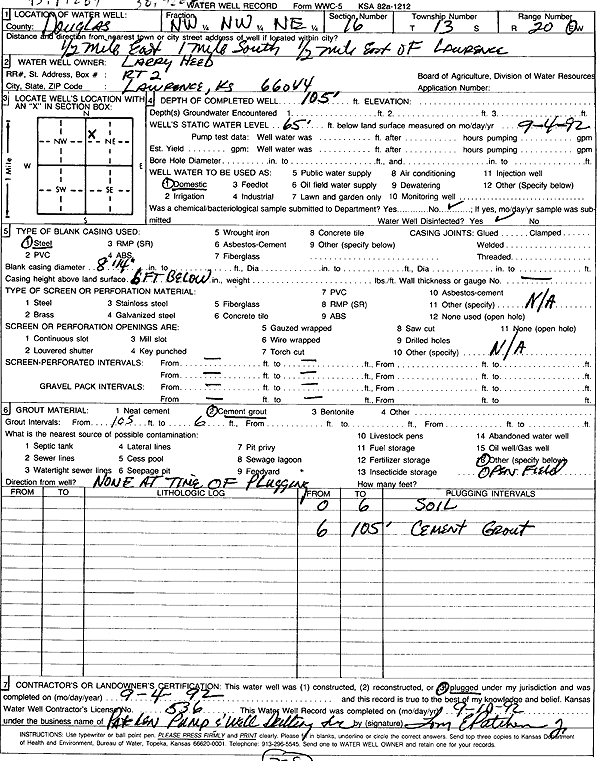 WATER WELL RECORD Form WWC-5 KSA 82a-1212
1 LOCATION OF WATER WELL: Fraction Section Number Township Number Range Number
County: Douglas NW ¼ NW ¼ NE ¼ 16 T 13 S R 20 E/W
Distance and direction from nearest town or city street address of well if located within city?
1/2 mile East 1 mile South 1/2 mile East of Lawrence
2 WATER WELL OWNER: Larry Heed
RR#, St. Address, Box # : RT 2 Board of Agriculture, Division of Water Resources
City, State, ZIP Code : Lawrence, Ks 66044 Application Number:
3 LOCATE WELL'S LOCATION WITH AN "X" IN SECTION BOX:
N
NW X NE
W E
SW SE
S
1 Mile
4 DEPTH OF COMPLETED WELL 105' ft. ELEVATION:
Depth(s) Groundwater Encountered 1. ft. 2. ft. 3. ft.
WELL'S STATIC WATER LEVEL 65' ft. below land surface measured on mo/day/yr 9-4-92
Pump test data: Well water was ft. after hours pumping gpm
Est. Yield gpm: Well water was ft. after hours pumping gpm
Bore Hole Diameter in. to ft., and in. to ft.
WELL WATER TO BE USED AS: 5 Public water supply 8 Air conditioning 11 Injection well
1 Domestic 3 Feedlot 6 Oil field water supply 9 Dewatering 12 Other (Specify below)
2 Irrigation 4 Industrial 7 Lawn and garden only 10 Monitoring well
Was a chemical/bacteriological sample submitted to Department? Yes No ✓; If yes, mo/day/yr sample was submitted
Water Well Disinfected? Yes ✓ No
5 TYPE OF BLANK CASING USED: 5 Wrought iron 8 Concrete tile CASING JOINTS: Glued Clamped
1 Steel 3 RMP (SR) 6 Asbestos-Cement 9 Other (specify below) Welded
2 PVC 4 ABS 7 Fiberglass Threaded
Blank casing diameter 8 1/4" in. to ft., Dia in. to ft., Dia in. to ft.
Casing height above land surface 6 FT BELOW in., weight lbs./ft. Wall thickness or gauge No. —
TYPE OF SCREEN OR PERFORATION MATERIAL: 7 PVC 10 Asbestos-cement
1 Steel 3 Stainless steel 5 Fiberglass 8 RMP (SR) 11 Other (specify) N/A
2 Brass 4 Galvanized steel 6 Concrete tile 9 ABS 12 None used (open hole)
SCREEN OR PERFORATION OPENINGS ARE: 5 Gauzed wrapped 8 Saw cut 11 None (open hole)
1 Continuous slot 3 Mill slot 6 Wire wrapped 9 Drilled holes
2 Louvered shutter 4 Key punched 7 Torch cut 10 Other (specify) N/A
SCREEN-PERFORATED INTERVALS: From — ft. to — ft., From ft. to ft.
From ft. to ft., From ft. to ft.
GRAVEL PACK INTERVALS: From — ft. to — ft., From ft. to ft.
From ft. to ft., From ft. to ft.
6 GROUT MATERIAL: 1 Neat cement 2 Cement grout 3 Bentonite 4 Other
Grout Intervals: From 105 ft. to 6 ft., From ft. to ft., From ft. to ft.
What is the nearest source of possible contamination: 10 Livestock pens 14 Abandoned water well
1 Septic tank 4 Lateral lines 7 Pit privy 11 Fuel storage 15 Oil well/Gas well
2 Sewer lines 5 Cess pool 8 Sewage lagoon 12 Fertilizer storage 16 Other (specify below)
3 Watertight sewer lines 6 Seepage pit 9 Feedyard 13 Insecticide storage OPEN FIELD
Direction from well? NONE AT TIME OF Plugging How many feet?
FROM TO LITHOLOGIC LOG FROM TO PLUGGING INTERVALS
0 6 SOIL
6 105' Cement Grout
7 CONTRACTOR'S OR LANDOWNER'S CERTIFICATION: This water well was (1) constructed, (2) reconstructed, or (3) plugged under my jurisdiction and was
completed on (mo/day/year) 9-4-92 and this record is true to the best of my knowledge and belief. Kansas
Water Well Contractor's License No. 536 This Water Well Record was completed on (mo/day/yr) 9-10-92
under the business name of Pump & Well Drilling by (signature)
INSTRUCTIONS: Use typewriter or ball point pen. PLEASE PRESS FIRMLY and PRINT clearly. Please fill in blanks, underline or circle the correct answers. Send top three copies to Kansas Department
of Health and Environment, Bureau of Water, Topeka, Kansas 66620-0001. Telephone: 913-296-5545. Send one to WATER WELL OWNER and retain one for your records.